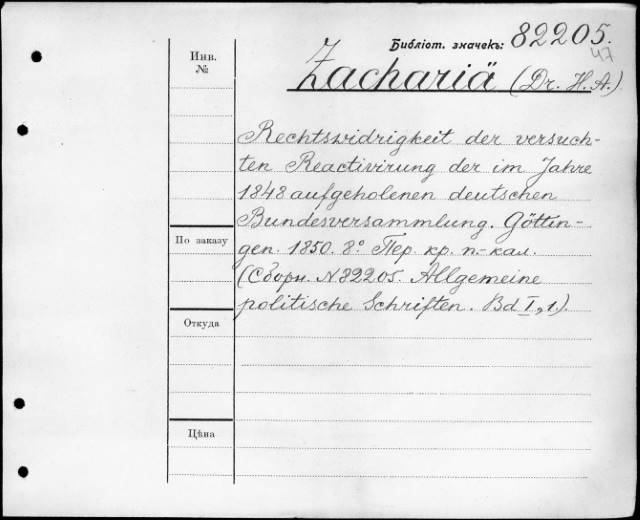 Библіот. значекъ: 82205.
47
Инв.
№
Zachariä (Dr. H. A.)
Rechtswidrigkeit der versuch-
ten Reactivirung der im Jahre
1848 aufgeholenen deutschen
Bundesversammlung. Göttin-
По заказу
gen. 1850. 8° Пер. кр. п.-кал.
(Сборн. N 82205. Allgemeine
politische Schriften. Bd I, 1.).
Откуда
Цѣна